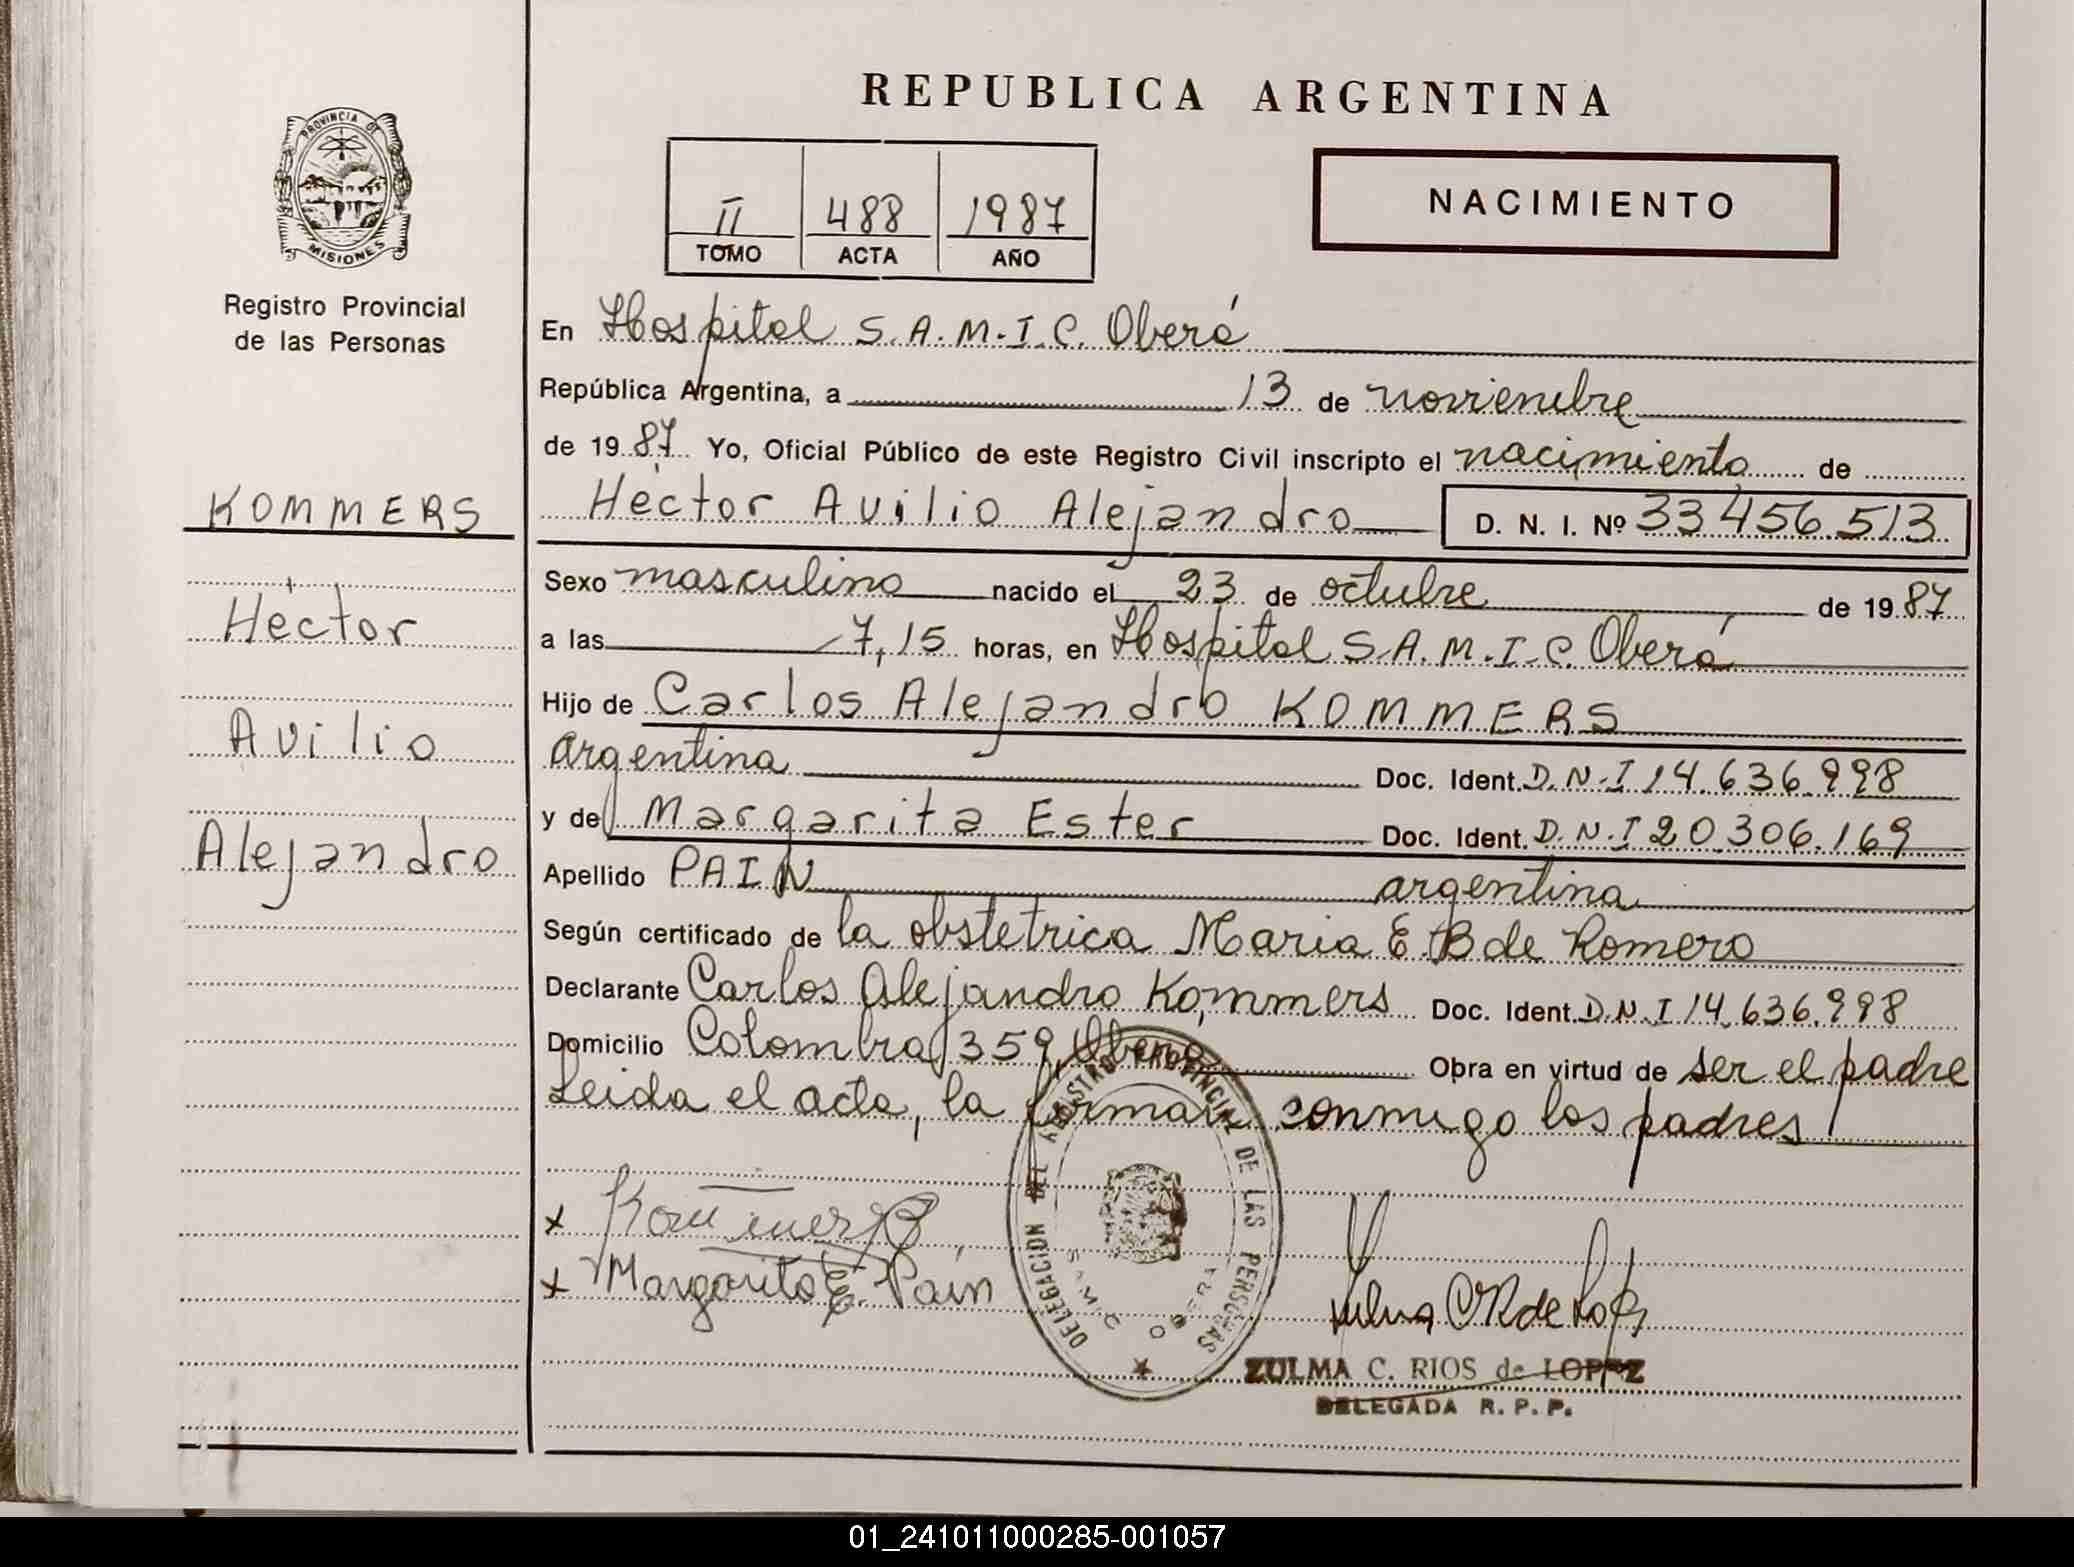 REPUBLICA ARGENTINA
PROVINCIA DE
MISIONES
Registro Provincial
de las Personas
II 488 1987
TOMO ACTA AÑO
NACIMIENTO
KOMMERS
Héctor
Avilio
Alejandro
En Hospital S.A.M.I.C. Oberá
República Argentina, a 13 de noviembre
de 1987 Yo, Oficial Público de este Registro Civil inscripto el nacimiento de
Héctor Avilio Alejandro D. N. I. Nº 33.456.513
Sexo masculino nacido el 23 de octubre de 1987
a las 7,15 horas, en Hospital S.A.M.I.C. Oberá
Hijo de Carlos Alejandro KOMMERS
argentina Doc. Ident. D.N.I 14.636.998
y de Margarita Ester Doc. Ident. D.N.I 20.306.169
Apellido PAIN argentina
Según certificado de la obstetrica Maria E. B de Romero
Declarante Carlos Alejandro Kommers Doc. Ident. D.N.I 14.636.998
Domicilio Colombia 359, Oberá Obra en virtud de ser el padre
Leida el acta, la firman conmigo los padres
x Kommers
x Margarita E. Pain
DELEGACION DEL REGISTRO PROVINCIAL DE LAS PERSONAS
SAMIC OBERA
ZULMA C. RIOS de LOPEZ
DELEGADA R. P. P.
01_241011000285-001057